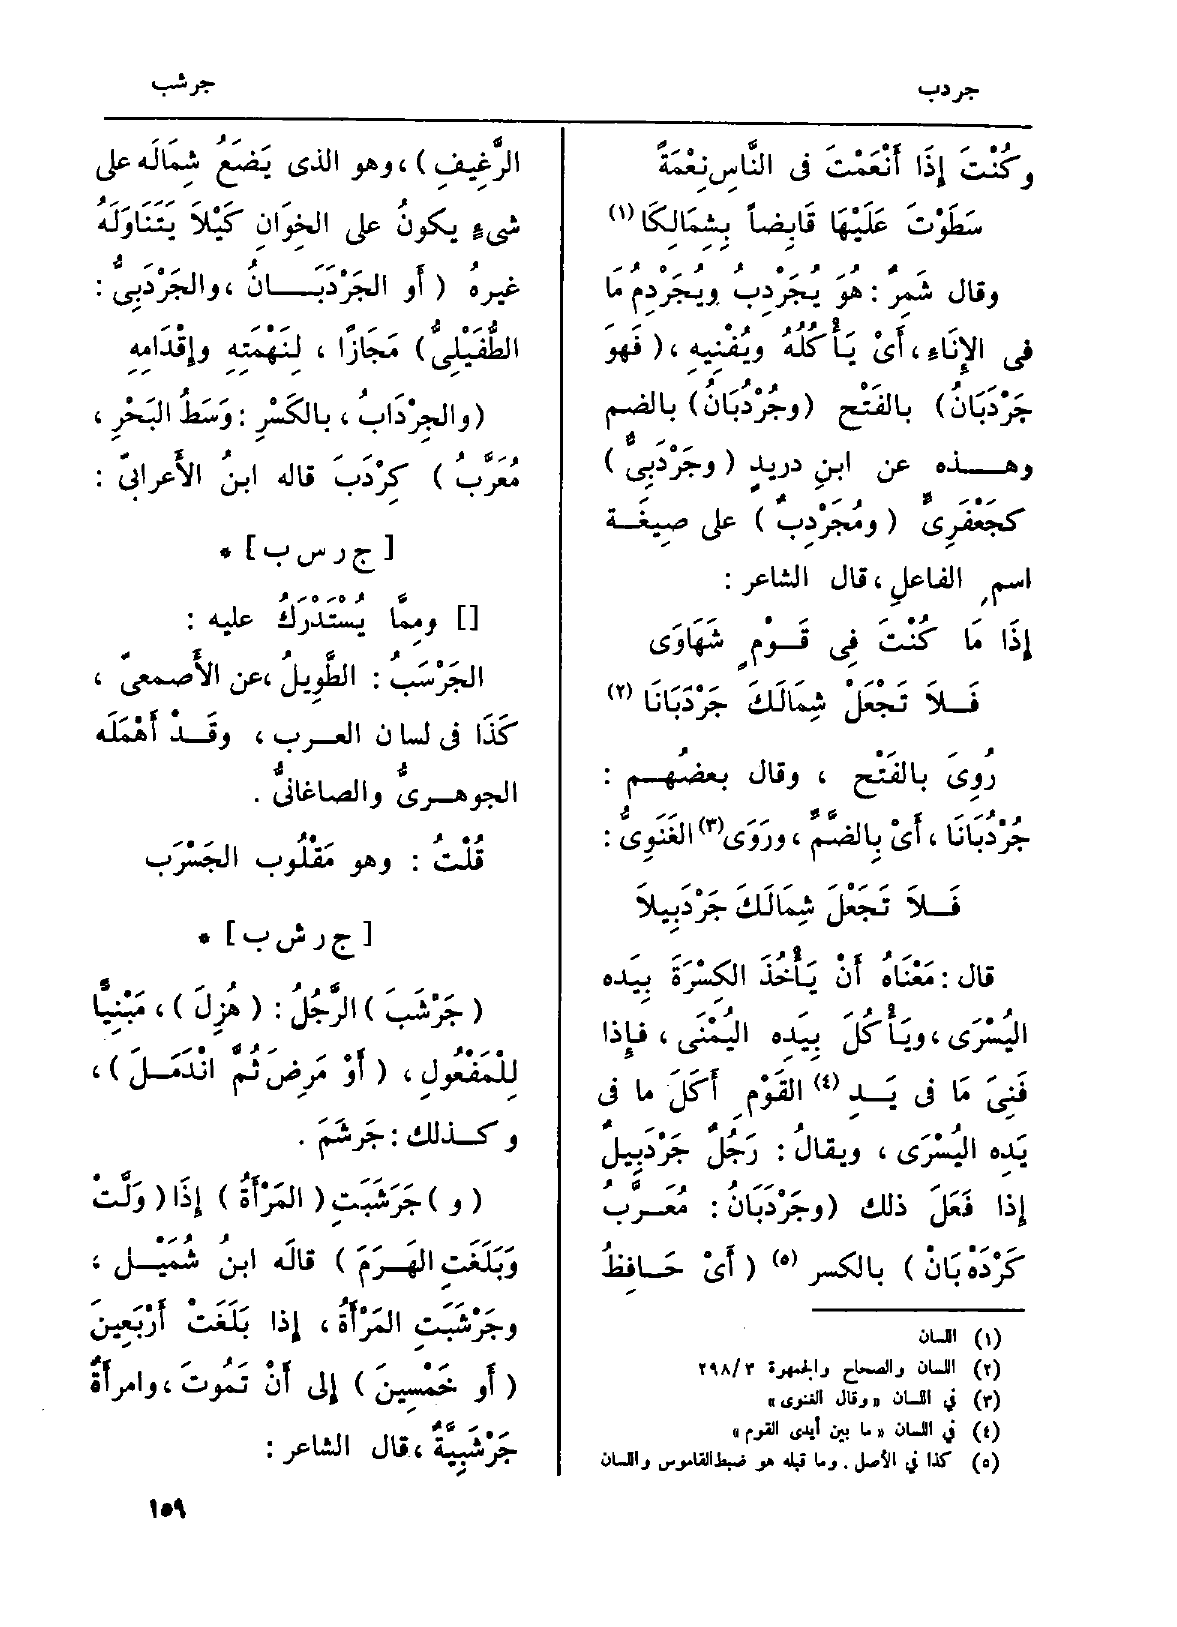 جردب
جرشب
وكُنْتَ إِذَا أَنْعَمْتَ فى النَّاسِ نِعْمَةً
سَطَوْتَ عَلَيْهَا قَابِضاً بِشِمَالِكَا (١)
وقال شَمِرٌ : هُوَ يُجَرْدِبُ ويُجَرْدِمُ مَا
فى الإِنَاءِ ، أَىْ يَأْكُلُهُ ويُفْنِيهِ ، ( فَهوَ
جَرْدَبَانُ ) بالفَتْح (وجُرْدُبَانُ) بالضم
وهـذه عن ابنِ دريدٍ ( وجَرْدَبِىٌّ )
كجَعْفَرِىٍّ ( ومُجَرْدِبٌ ) على صِيغَـة
اسم الفاعلِ ، قال الشاعر :
إِذَا مَا كُنْتَ فِى قَـوْمٍ شَهَاوَى
فَـلاَ تَجْعَلْ شِمَالَكَ جَرْدَبَانَا (٢)
رُوِىَ بالفَتْح ، وقال بعضُهـم :
جُرْدُبَانَا ، أَىْ بِالضَّمِّ ، ورَوَى (٣) الغَنَوِىُّ :
فَـلاَ تَجْعَلْ شِمَالَكَ جَرْدَبِيلاَ
قال : مَعْنَاهُ أَنْ يَأْخُذَ الكِسْرَةَ بِيَده
اليُسْرَى ، ويَأْكُلَ بِيَدِه اليُمْنَى ، فإِذا
فَنِىَ مَا فى يَـدِ (٤) القَوْمِ أَكَلَ ما فى
يَدِه اليُسْرَى ، ويقالُ : رَجُلٌ جَرْدَبِيلٌ
إِذا فَعَلَ ذلك (وجَرْدَبَانُ : مُعَـرَّبُ
كَرْدَهْ بَانْ ) بالكسر (٥) ( أَىْ حَـافِظُ
(١) اللسان
(٢) اللسان والصحاح والجمهرة ٢٩٨/٣
(٣) في اللسان « وقال الغنوى »
(٤) في اللسان « ما بين أيدى القوم »
(٥) كذا في الأصل . وما قبله هو ضبط القاموس واللسان
الرَّغِيفِ ) ، وهو الذى يَضَعُ شِمَالَه على
شىءٍ يكونُ على الخِوَانِ كَيْلاَ يَتَنَاوَلَهُ
غيرهُ ( أَو الجَرْدَبَـانُ ، والجَرْدَبِىُّ :
الطُّفَيْلِىُّ ) مَجَازًا ، لِنَهْمَتِهِ وإِقْدَامِهِ
(والجِرْدَابُ ، بالكَسْرِ : وَسَطُ البَحْرِ ،
مُعَرَّبُ ) كِرْدَبَ قاله ابنُ الأَعرابىِّ :
[ ج ر س ب ] *
[] ومِمَّا يُسْتَدْرَكُ عليه :
الجَرْسَبُ : الطَّوِيلُ ، عن الأَصمعىِّ ،
كَذَا فى لسان العـرب ، وقَـدْ أَهْمَلَه
الجوهـرىُّ والصاغانىُّ .
قُلْتُ : وهو مَقْلُوب الجَسْرَب
[ ج ر ش ب ] *
( جَرْشَبَ ) الرَّجُلُ : ( هُزِلَ ) ، مَبْنِيًّا
لِلْمَفْعُولِ ، ( أَوْ مَرِضَ ثُمَّ انْدَمَـلَ ) ،
وكـذلك : جَرشَمَ .
( و ) جَرَشَبَتِ ( المَرْأَةُ ) إِذَا ( وَلَّتْ
وَبَلَغَتِ الهَـرَمَ ) قالَه ابنُ شُمَيْـل ،
وجَرْشَبَتِ المَرْأَةُ ، إِذا بَلَغَتْ أَرْبَعِينَ
( أَو خَمْسِينَ ) إِلى أَنْ تَمُوتَ ، وامرأَةٌ
جَرْشَبِيَّةٌ ، قال الشاعر :
١٥٩